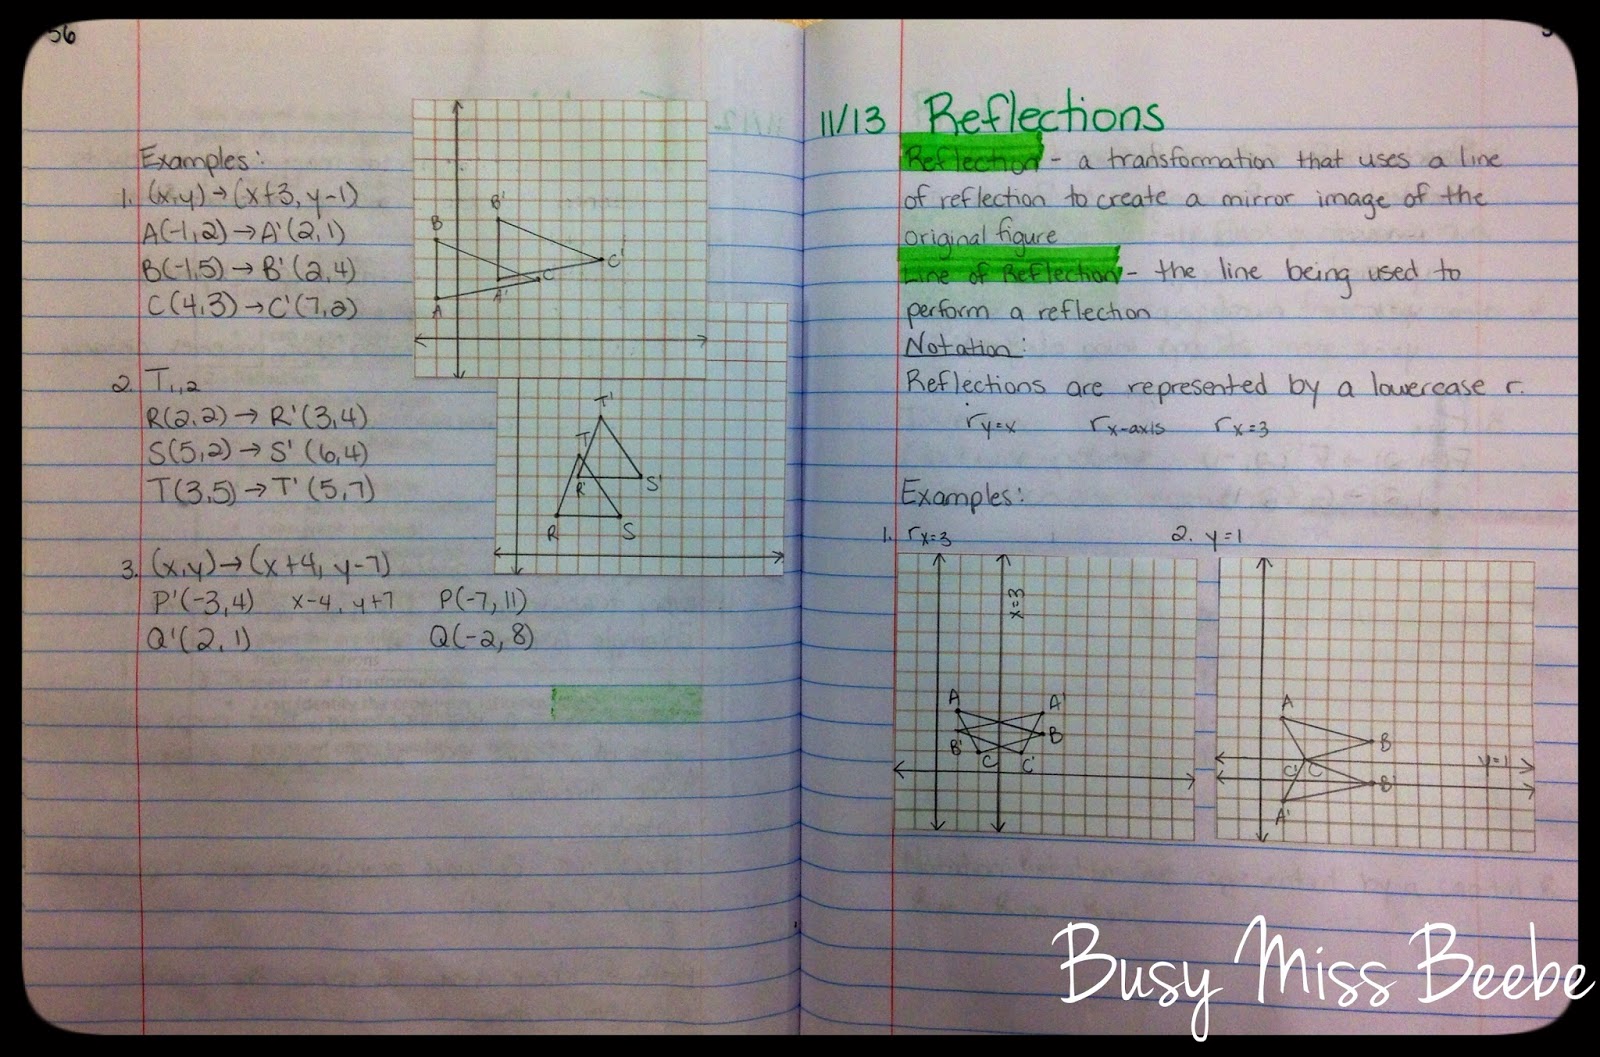 56
Examples:
1. (x,y)→(x+3, y-1)
A(-1,2)→A'(2,1)
B(-1,5)→B'(2,4)
C(4,3)→C'(7,2)
B
A
C
B'
A'
C'
2. T1,2
R(2,2)→R'(3,4)
S(5,2)→S'(6,4)
T(3,5)→T'(5,7)
T'
T
R'
S'
R
S
3. (x,y)→(x+4, y-7)
P'(-3,4) x-4, y+7 P(-7,11)
Q'(2,1) Q(-2,8)
11/13 Reflections
Reflection - a transformation that uses a line
of reflection to create a mirror image of the
original figure
Line of Reflection - the line being used to
perform a reflection
Notation:
Reflections are represented by a lowercase r.
ry=x rx-axis rx=3
Examples:
1. rx=3 2. y=1
x=3
A
A'
B'
B
C
C'
A
B
y=1
C'
C
B'
A'
Busy Miss Beebe